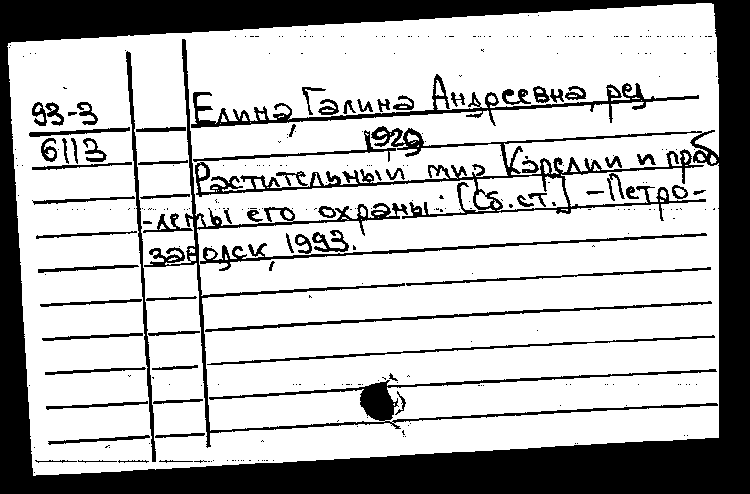 93-3
6113
Елина, Галина Андреевна, рез.
1929
Растительный мир Карелии и проб
-лемы его охраны: [Сб. ст.]. - Петро-
заводск, 1993.